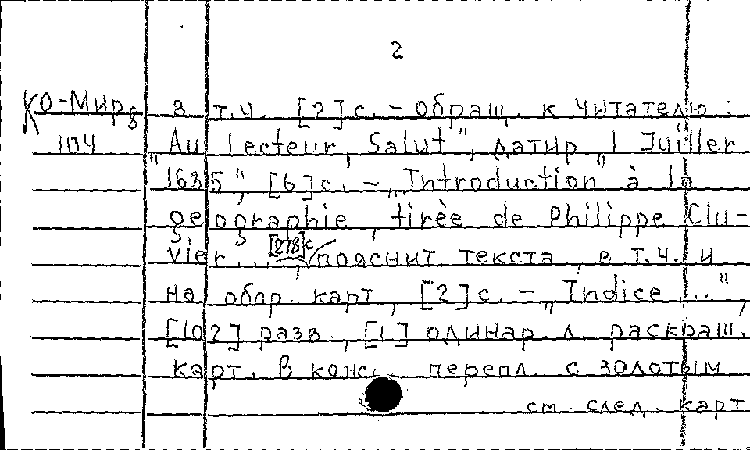 2
КО-Мир8 в т.ч. [2] с. – обращ. к читателю:
104 "Au lecteur, Salut", датир "1 Juillet
1635", [6] с. – "Introduction" à la
geographie, tirèe de Philippe Clu-
vier...", [278] с. пояснит текста, в т.ч. и
на обор. карт, [2] с. – "Indice ...",
[102] разв., [1] одинар л. раскраш.
карт. В кож. перепл. с золотым
см. след. карт